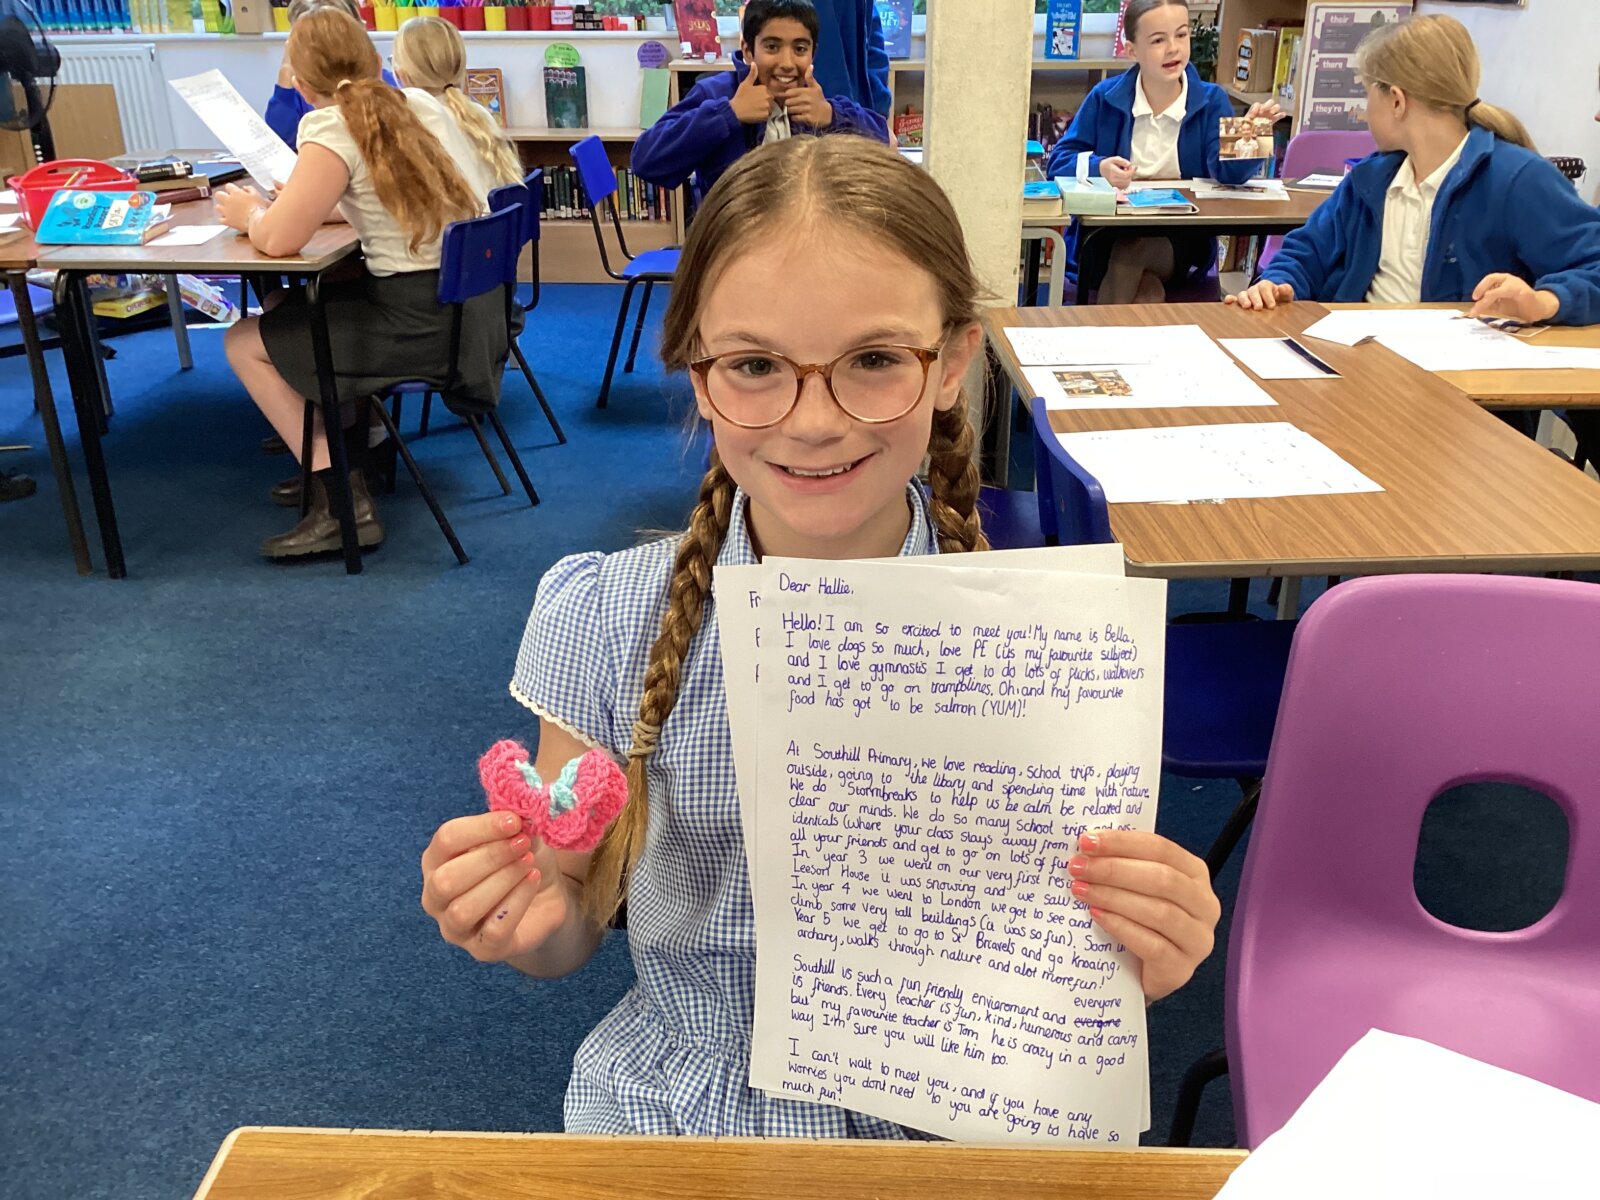 their
there
they're
Fr
Dear Hallie,
Hello! I am so excited to meet you! My name is Bella,
I love dogs so much, love PE (its my favourite subject)
and I love gymnastis I get to do lots of flicks, walkovers
and I get to go on trampolines. Oh, and my favourite
food has got to be salmon (YUM)!
At Southill Primary, we love reading, school trips, playing
outside, going to the libary and spending time with nature.
We do Stormbreaks to help us be calm be relaxed and
clear our minds. We do so many school trips and res-
identials (where your class stays away from
all your friends and get to go on lots of fu
In year 3 we went on our very first resi
Leeson House it was snowing and we saw so
In year 4 we went to London we got to see and
climb some very tall buildings (it was so fun). Soon in
Year 5 we get to go to St Bravels and go knoaing,
archary, walks through nature and alot more fun!
Southill is such a fun friendly envieroment and everyone
is friends. Every teacher is fun, kind, humerous and caring
but my favourite teacher is Tom he is crazy in a good
way I'm sure you will like him too.
I can't wait to meet you, and if you have any
worries you dont need to you are going to have so
much fun!